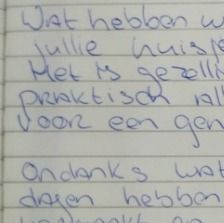 Wat hebben w
jullie huisje
Het is gezelli
praktisch all
voor een gen
Ondanks wat
dagen hebben